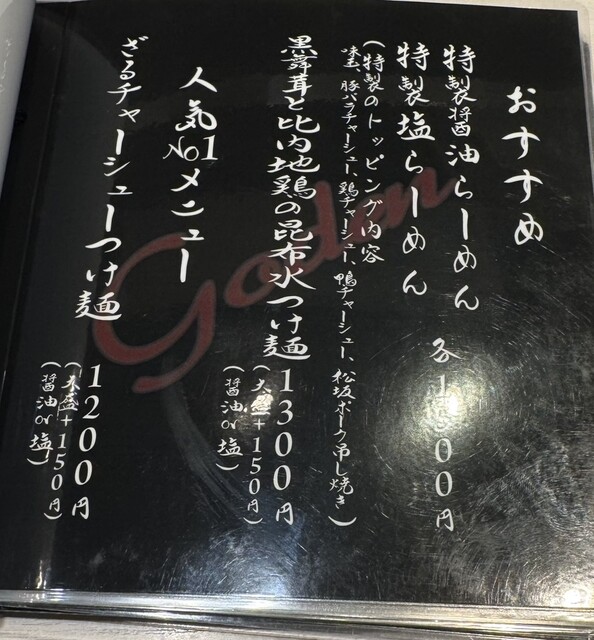 おすすめ
特製醤油らーめん
特製塩らーめん
各1 00円
(特製のトッピング内容
味玉、豚バラチャーシュー、鶏チャーシュー、鴨チャーシュー、松坂ポーク吊し焼き)
黒舞茸と比内地鶏の昆布水つけ麺
1300円
(大盛+150円)
(醤油or塩)
人気No1メニュー
ざるチャーシューつけ麺
1200円
(大盛+150円)
(醤油or塩)